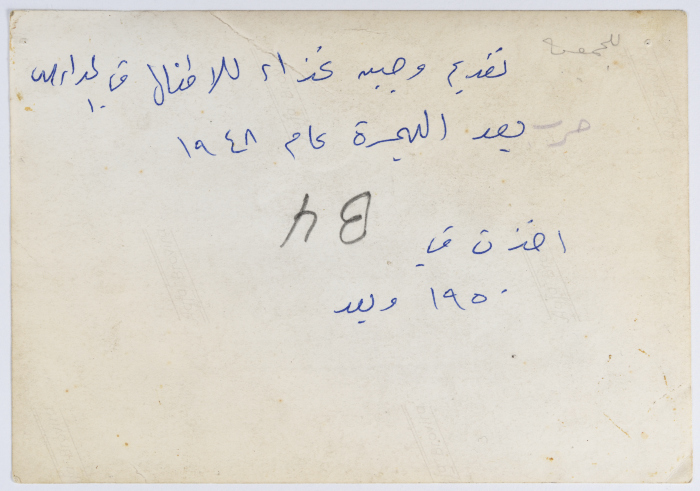 للجمعية
تقديم وجبه غذاء للاطفال في المدارس
حرب
بعد الهجرة عام ١٩٤٨
B4
اخذت في
١٩٥٠ وبعد